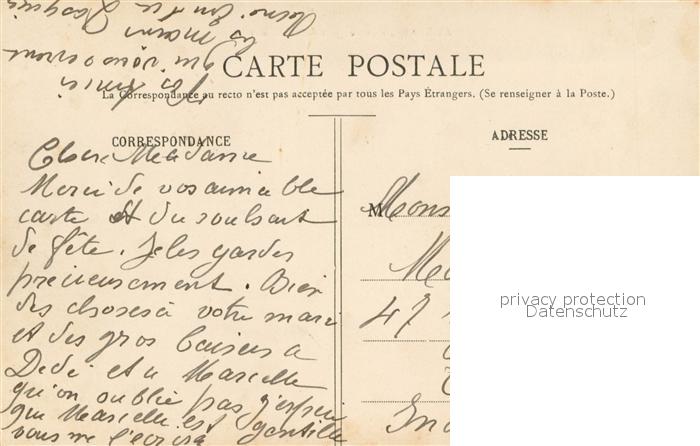 CARTE POSTALE
La Correspondance au recto n'est pas acceptée par tous les Pays Étrangers. (Se renseigner à la Poste.)
CORRESPONDANCE
Chere Madame
Merci de vos aimable
carte et du souhait
de fête. Je les gardes
precieusement. Bien
des choses à votre mari
et des gros baisers a
Dédé et a Marcelle
qu'on oublie pas j'espère
que Marcelle est gentille
vous me l'ecrira
Vos Amies
qui vous
les
ADRESSE
M Mons
47
privacy protection
Datenschutz